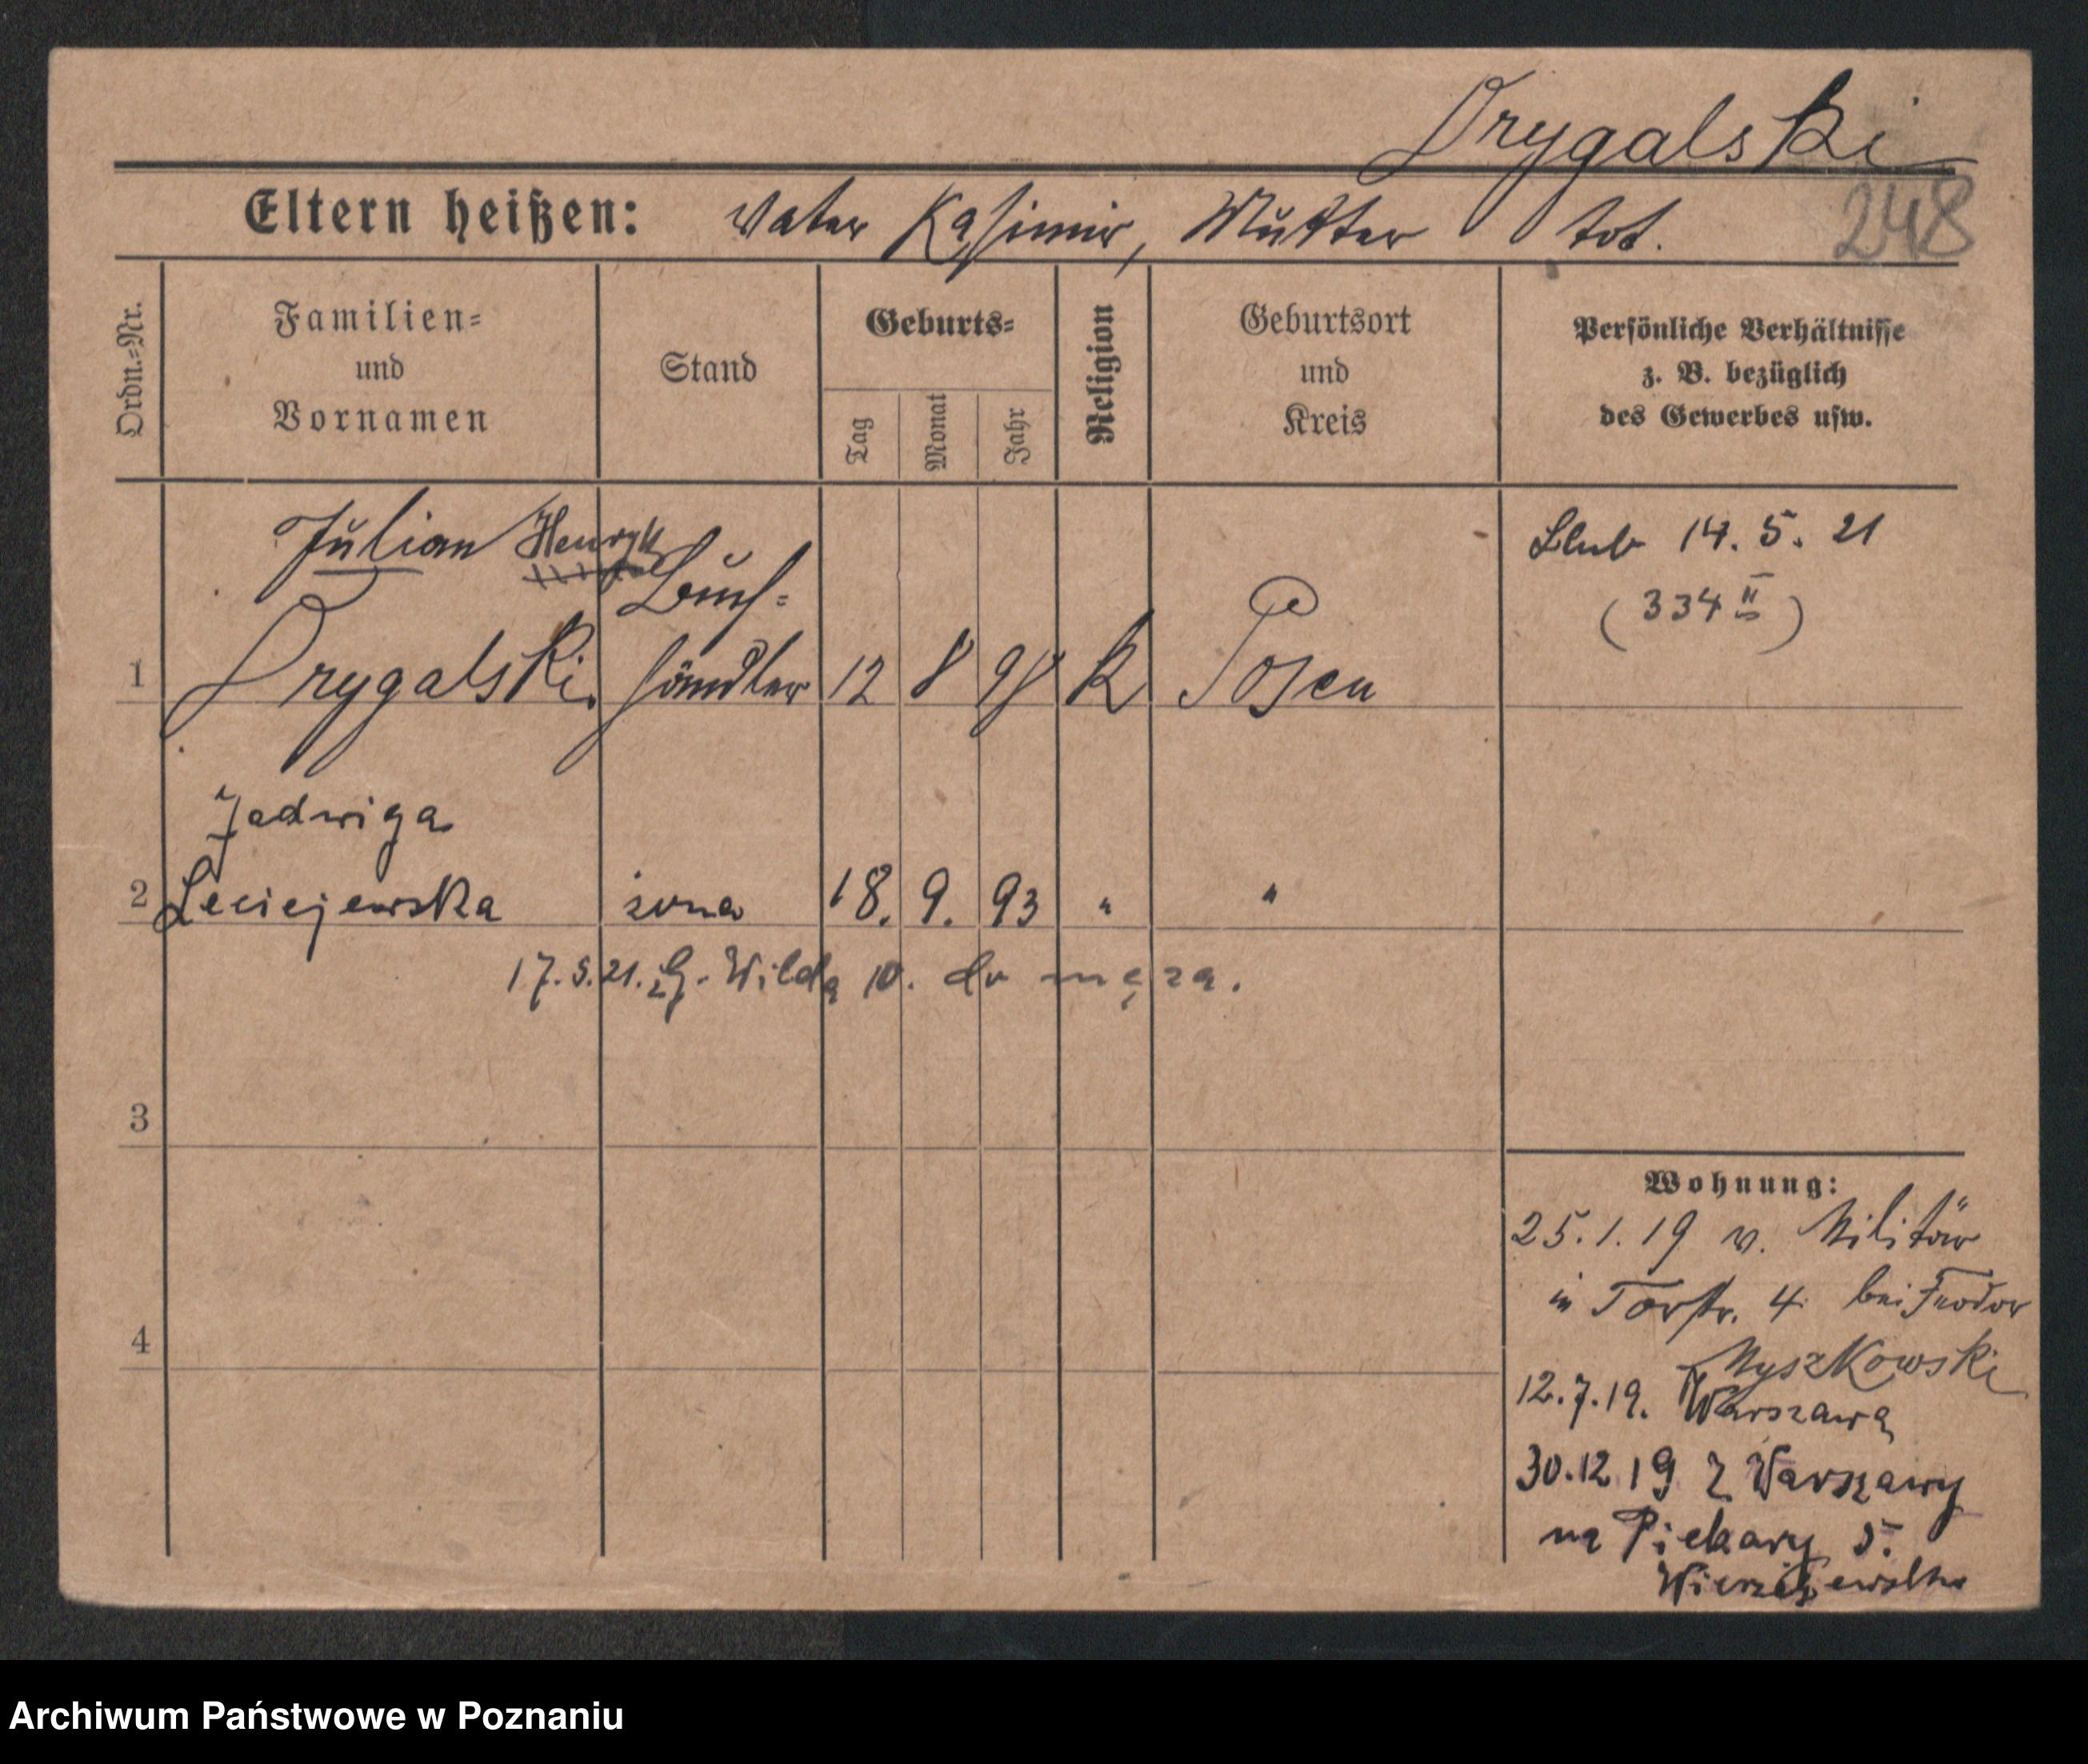 Drygalski
248
Eltern heißen: Vater Kasimir, Mutter tot.
Ordn.=Nr.
Familien=
und
Vornamen
Stand
Geburts=
Tag
Monat
Jahr
Religion
Geburtsort
und
Kreis
Persönliche Verhältnisse
z. B. bezüglich
des Gewerbes usw.
Julian Henryk
Buch=
1 Drygalski. händler 12 8 98 K Posen
Ślub 14. 5. 21
(334 II)
Jadwiga
2 Leciejewska żona 18. 9. 93 " "
17. 5. 21. Wilda 10. do męża.
3
4
Wohnung:
25. 1. 19 v. Militär
in Torstr. 4. bei Feodor
Myszkowski
12. 7. 19. Warszawa
30. 12 19 z Warszawy
na Piekary 5.
Archiwum Państwowe w Poznaniu